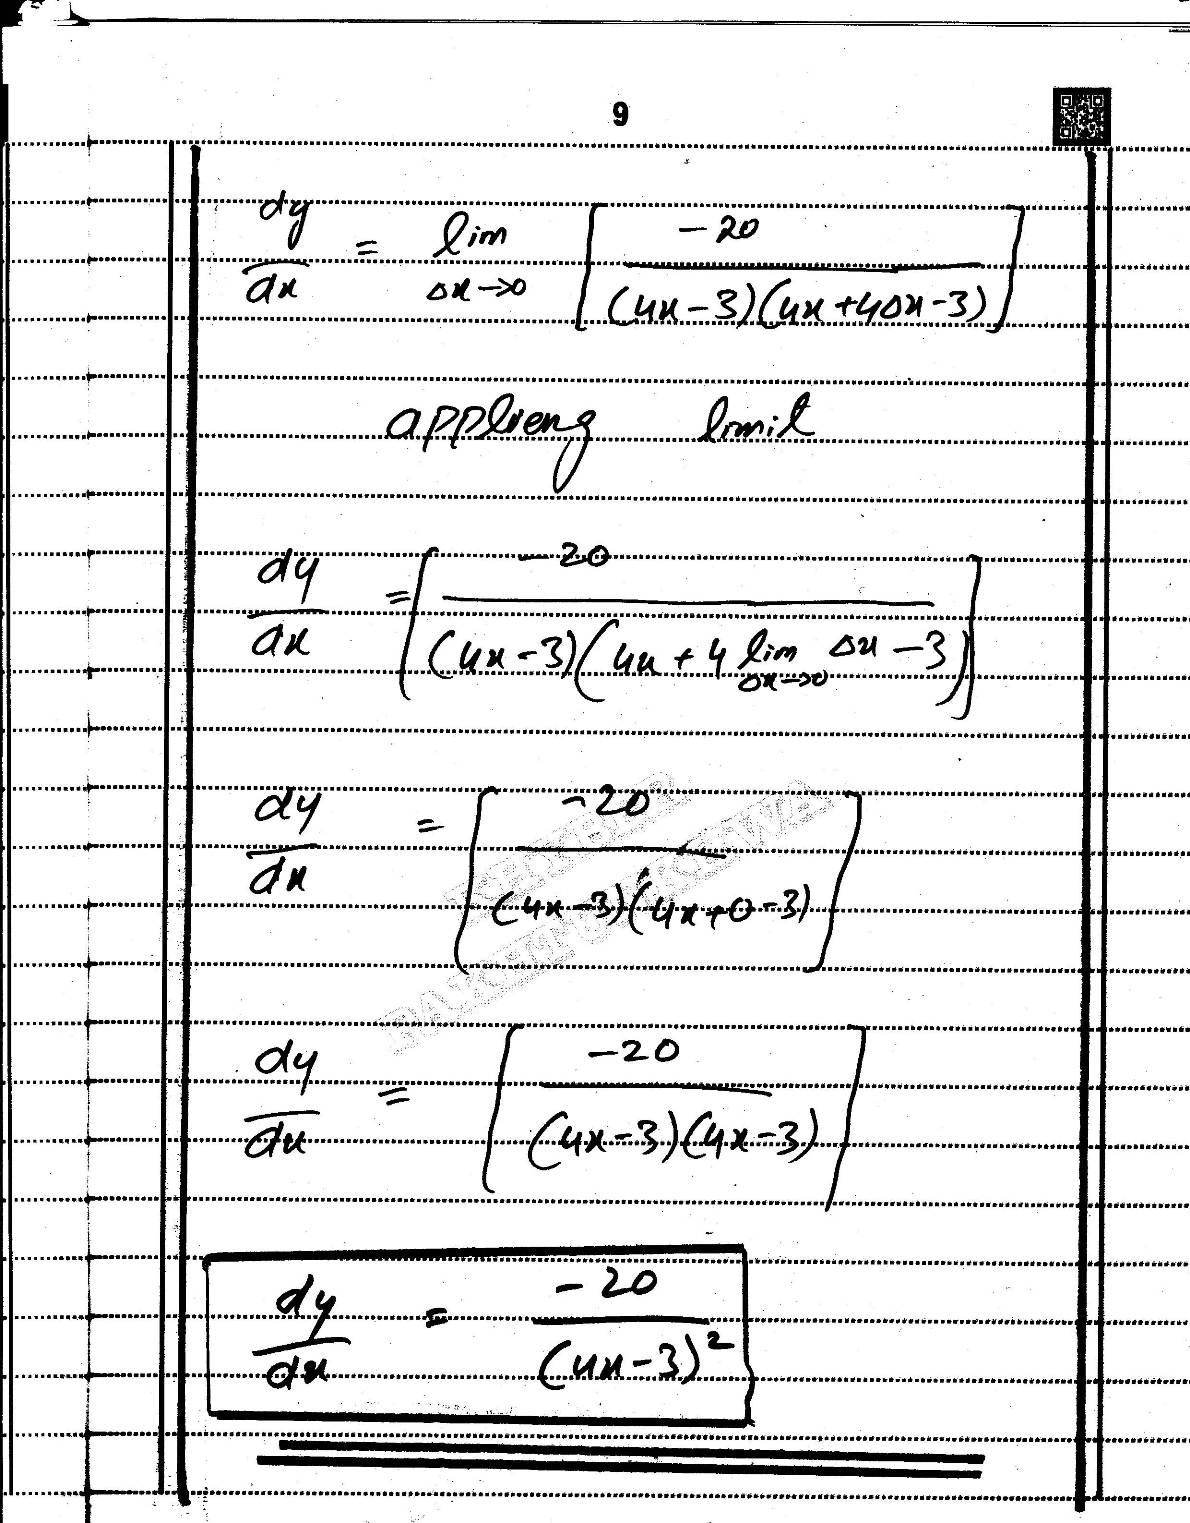 9
dy/dx = lim Δx→0 [ -20 / (4x-3)(4x+4Δx-3) ]
applieng limit
dy/dx = [ -20 / (4x-3)(4x+4 lim Δx→0 Δx-3) ]
dy/dx = [ -20 / (4x-3)(4x+0-3) ]
KHYBER
PAKHTUNKHWA
dy/dx = [ -20 / (4x-3)(4x-3) ]
dy/dx = -20 / (4x-3)²